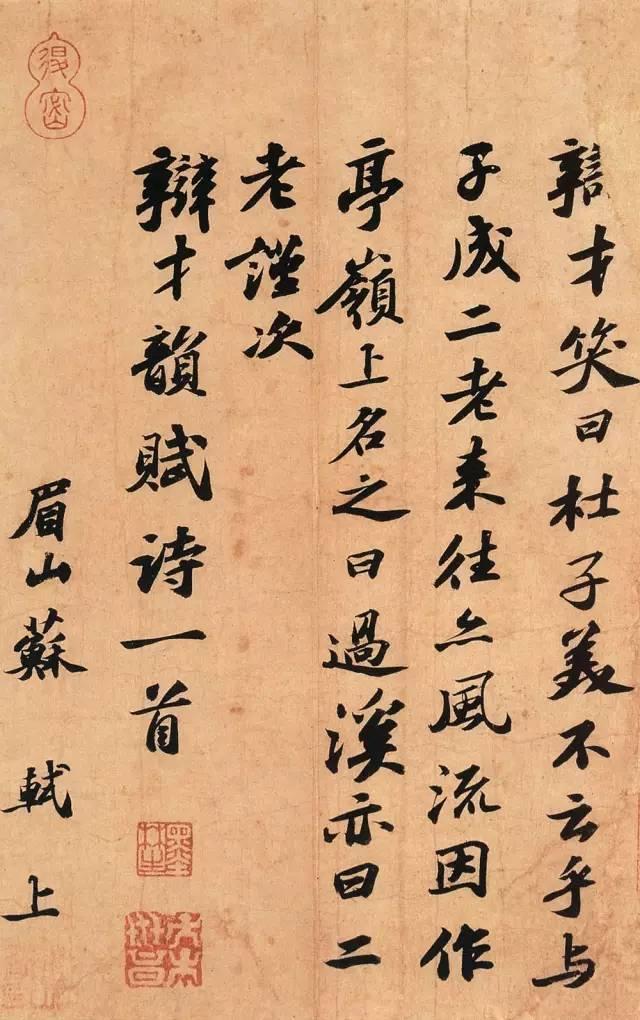 辯才笑曰杜子美不云乎与
子成二老来往亦風流因作
亭嶺上名之曰過溪亦曰二
老謹次
辯才韻賦詩一首
眉山蘇 軾 上